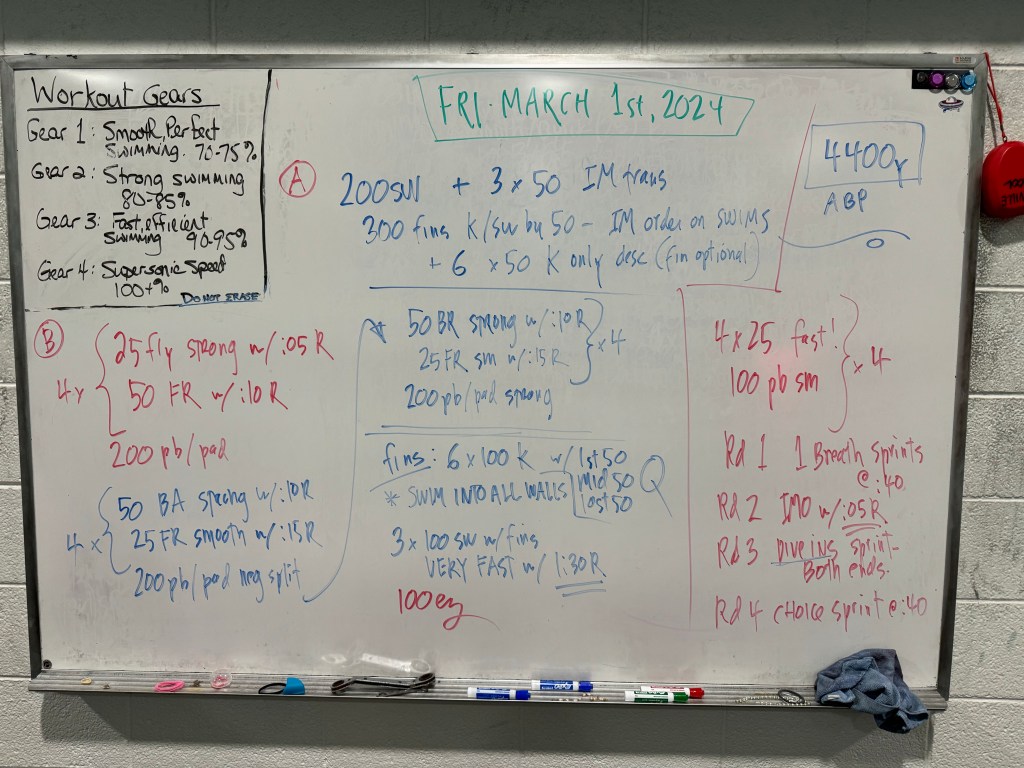 Workout Gears
Gear 1: Smooth, Perfect
Swimming. 70-75%
Gear 2: Strong swimming
80-85%
Gear 3: Fast, efficient
Swimming 90-95%
Gear 4: Supersonic Speed
100+%
DO NOT ERASE
FRI. MARCH 1st, 2024
4400y
ABP
A
200 SW + 3 x 50 IM trans
300 fins K/sw by 50 - IM order on swims
+ 6 x 50 K only desc (fin optional)
B
4x
25 fly strong w/ :05 R
50 FR w/ :10 R
200 pb/pad
4x
50 BA strong w/ :10R
25 FR smooth w/ :15 R
200 pb/pad neg split
* 50 BR strong w/ :10 R
25 FR sm w/ :15 R
x 4
200 pb/pad strong
fins: 6 x 100 K w/ 1st 50
mid 50
last 50
* SWIM INTO ALL WALLS
3 x 100 sw w/ fins
VERY FAST w/ 1:30 R
100 ey
4 x 25 fast!
100 pb sm
x 4
Rd 1 1 Breath sprints
@ :40
Rd 2 IMO w/ :05 R
Rd 3 DIVE INS sprint-
Both ends.
Rd 4 CHOICE sprint @ :40